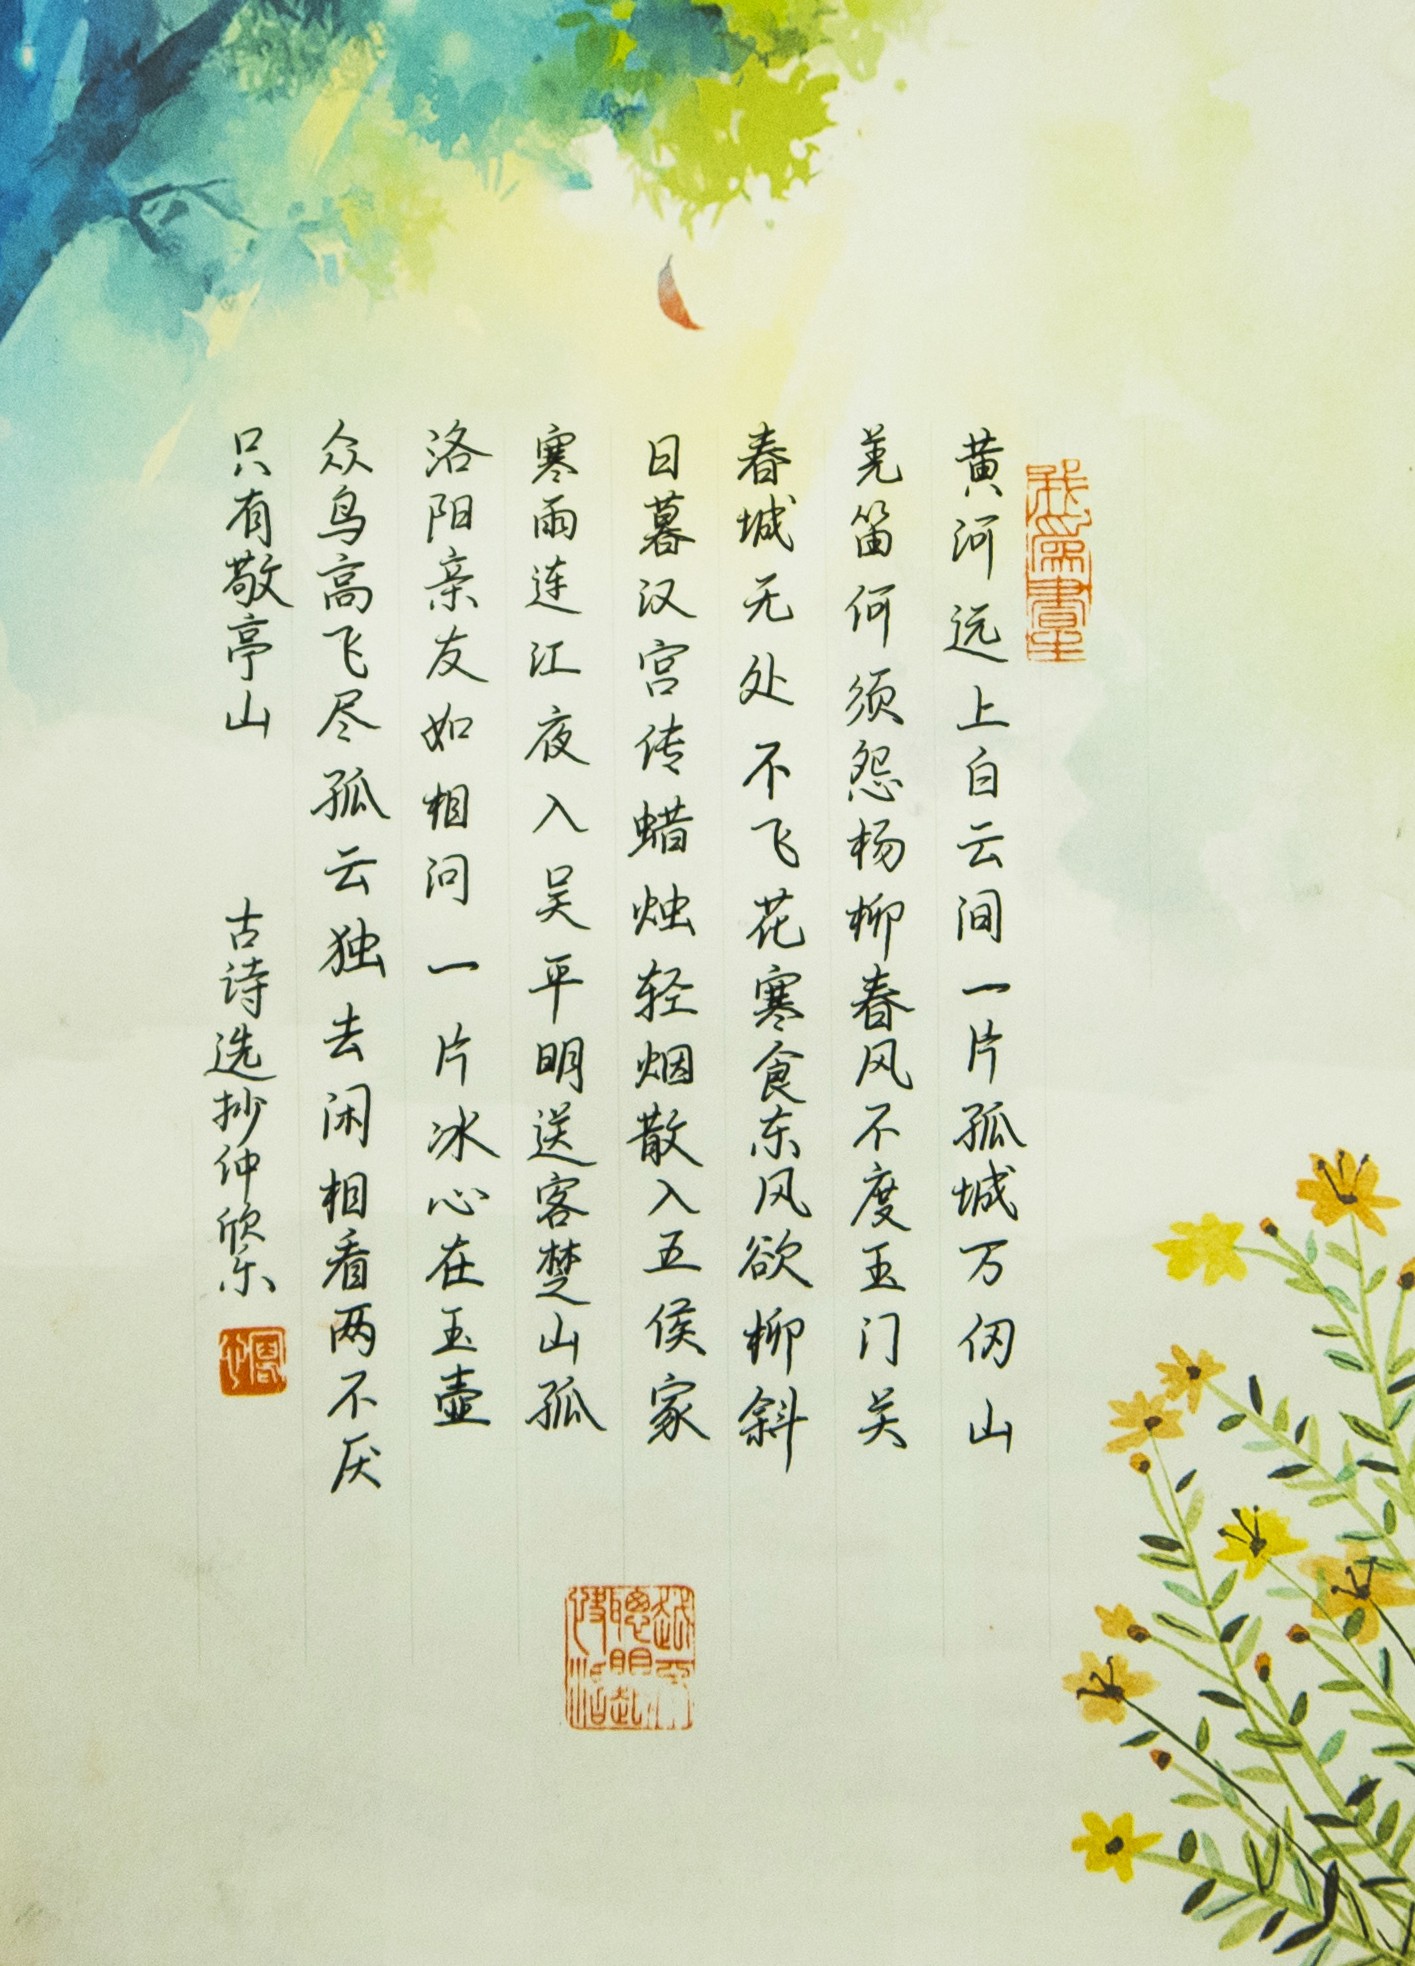 黄河远上白云间一片孤城万仞山
羌笛何须怨杨柳春风不度玉门关
春城无处不飞花寒食东风欲柳斜
日暮汉宫传蜡烛轻烟散入五侯家
寒雨连江夜入吴平明送客楚山孤
洛阳亲友如相问一片冰心在玉壶
众鸟高飞尽孤云独去闲相看两不厌
只有敬亭山 古诗选抄仲欣乐
我為書